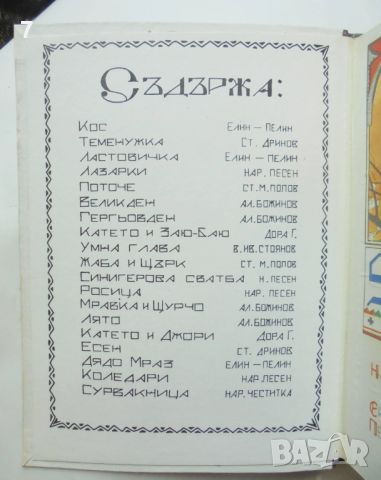 Съдържа:
Кос Елин – Пелин
Теменужка Ст. Дринов
Ластовичка Елин – Пелин
Лазарки нар. песен
Поточе ст. м. попов
Великден ал. божинов
Гергьовден ал. божинов
Катето и Заю-Баю Дора Г.
Умна глава в. ив. стоянов
Жаба и Щърк ст. м. попов
Синигерова сватба н. песен
Росица нар. песен
Мравка и Щурчо ал. божинов
Лято ал. божинов
Катето и Джори Дора Г.
Есен ст. дринов
Дядо Мраз елин – пелин
Коледари нар. песен
Сурвакница нар. честитка
BAZAR